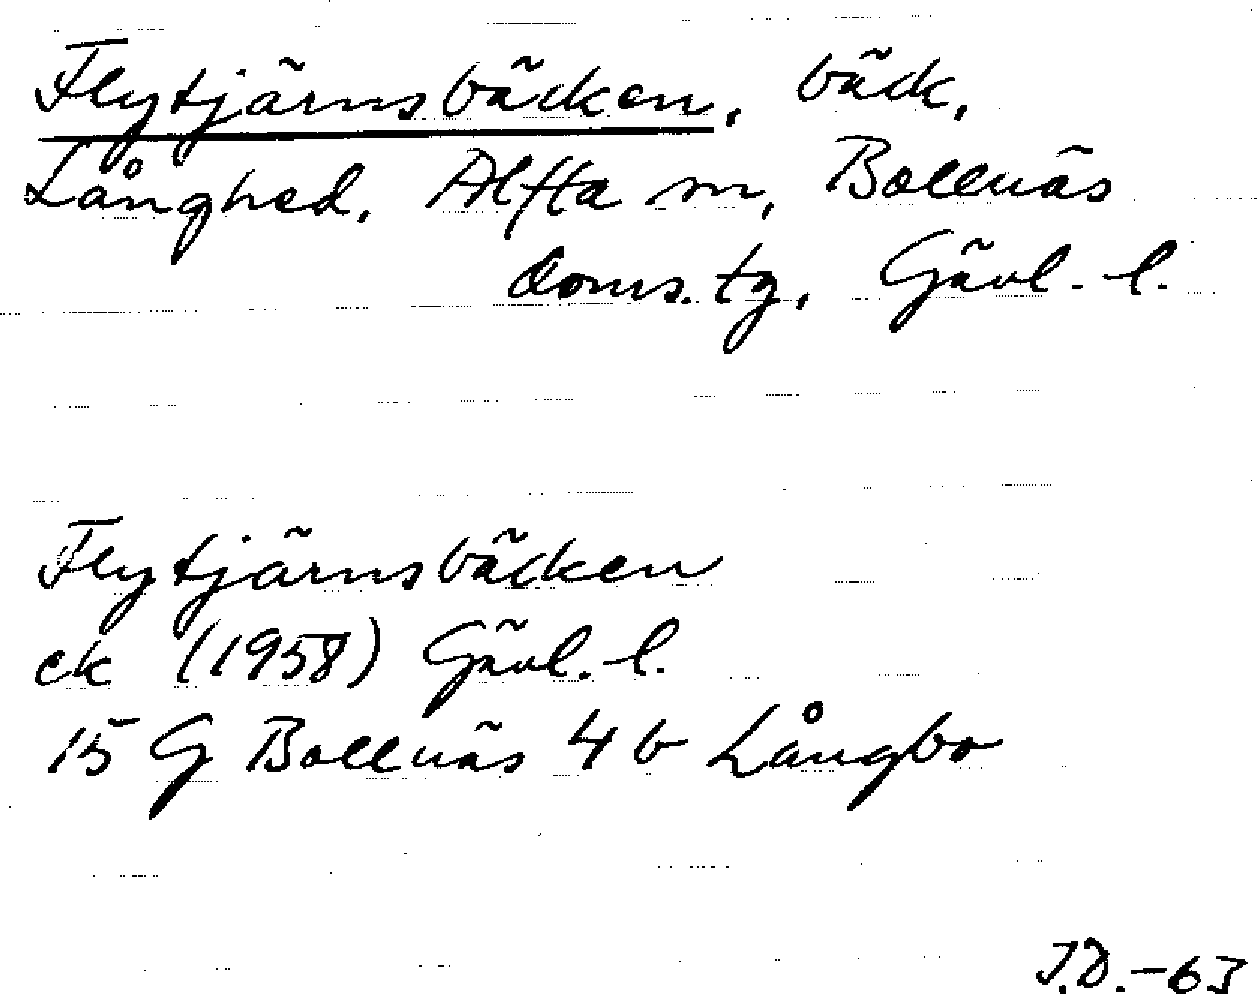 Flytjärnsbäcken, bäck,
Långhed, Alfta sn, Bollnäs
doms.tg, Gävl.-l.
Flytjärnsbäcken
ek (1958) Gävl.-l.
15 G Bollnäs 4 b Långbo
J.D.-63